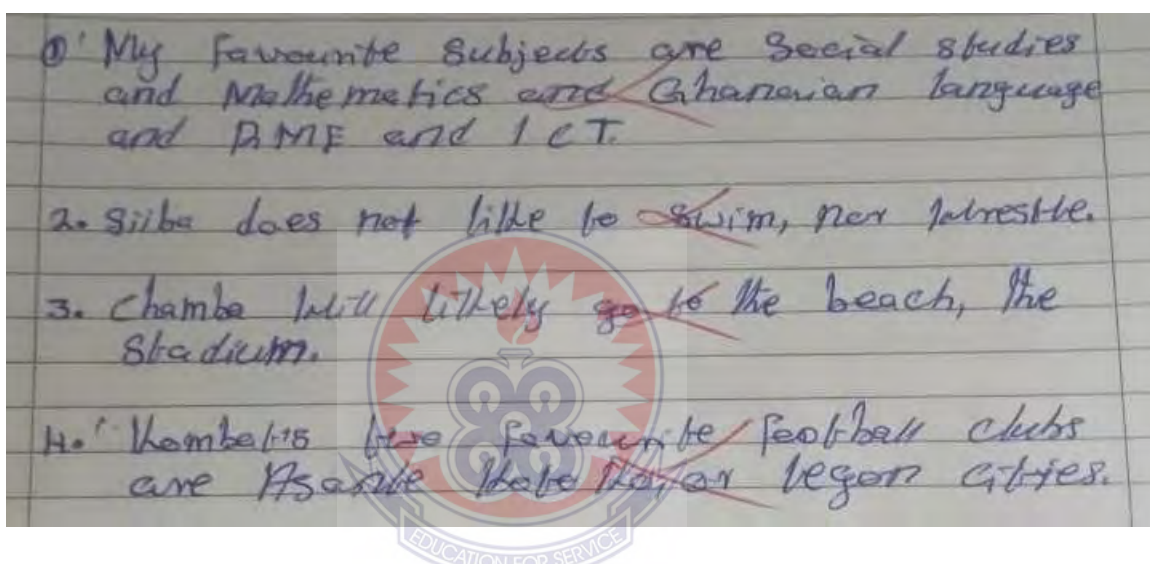 ① My Favourite Subjects are Social studies
and Mathematics and Ghanaian language
and RME and ICT.
2. Siiba does not like to swim, nor wrestle.
3. Chamba will likely go to the beach, the
Stadium.
4. Kombat's two favourite football clubs
are Asante Kotoko or legon Cities.
EDUCATION FOR SERVICE